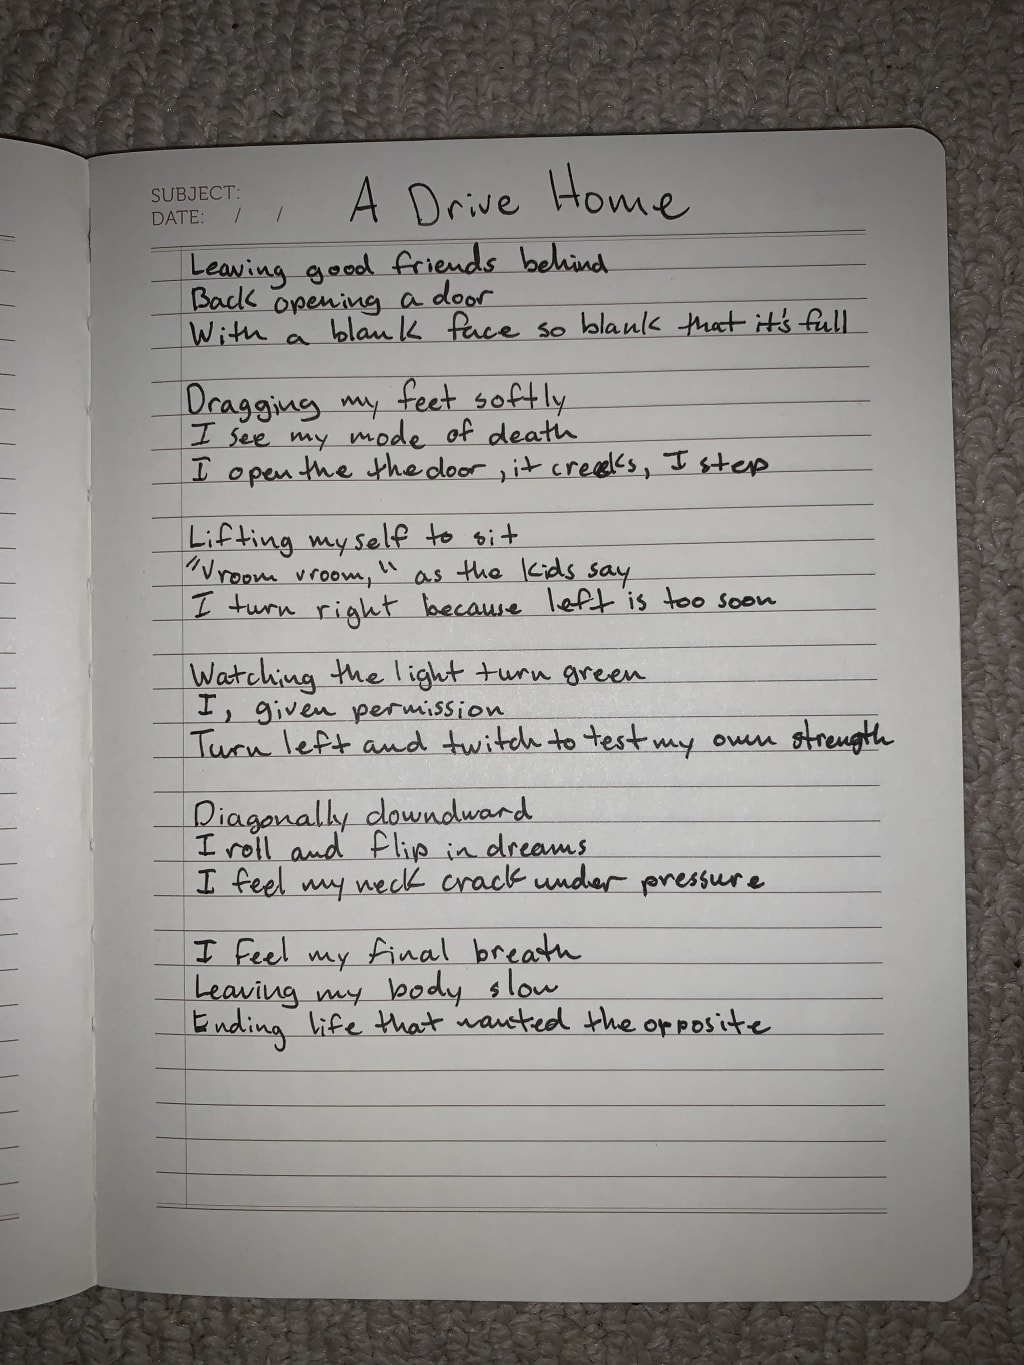 SUBJECT:
DATE: / /
A Drive Home
Leaving good friends behind
Back opening a door
With a blank face so blank that it's full
Dragging my feet softly
I see my mode of death
I open the the door, it creeks, I step
Lifting myself to sit
"Vroom vroom," as the kids say
I turn right because left is too soon
Watching the light turn green
I, given permission
Turn left and twitch to test my own strength
Diagonally downdward
I roll and flip in dreams
I feel my neck crack under pressure
I feel my final breath
Leaving my body slow
Ending life that wanted the opposite